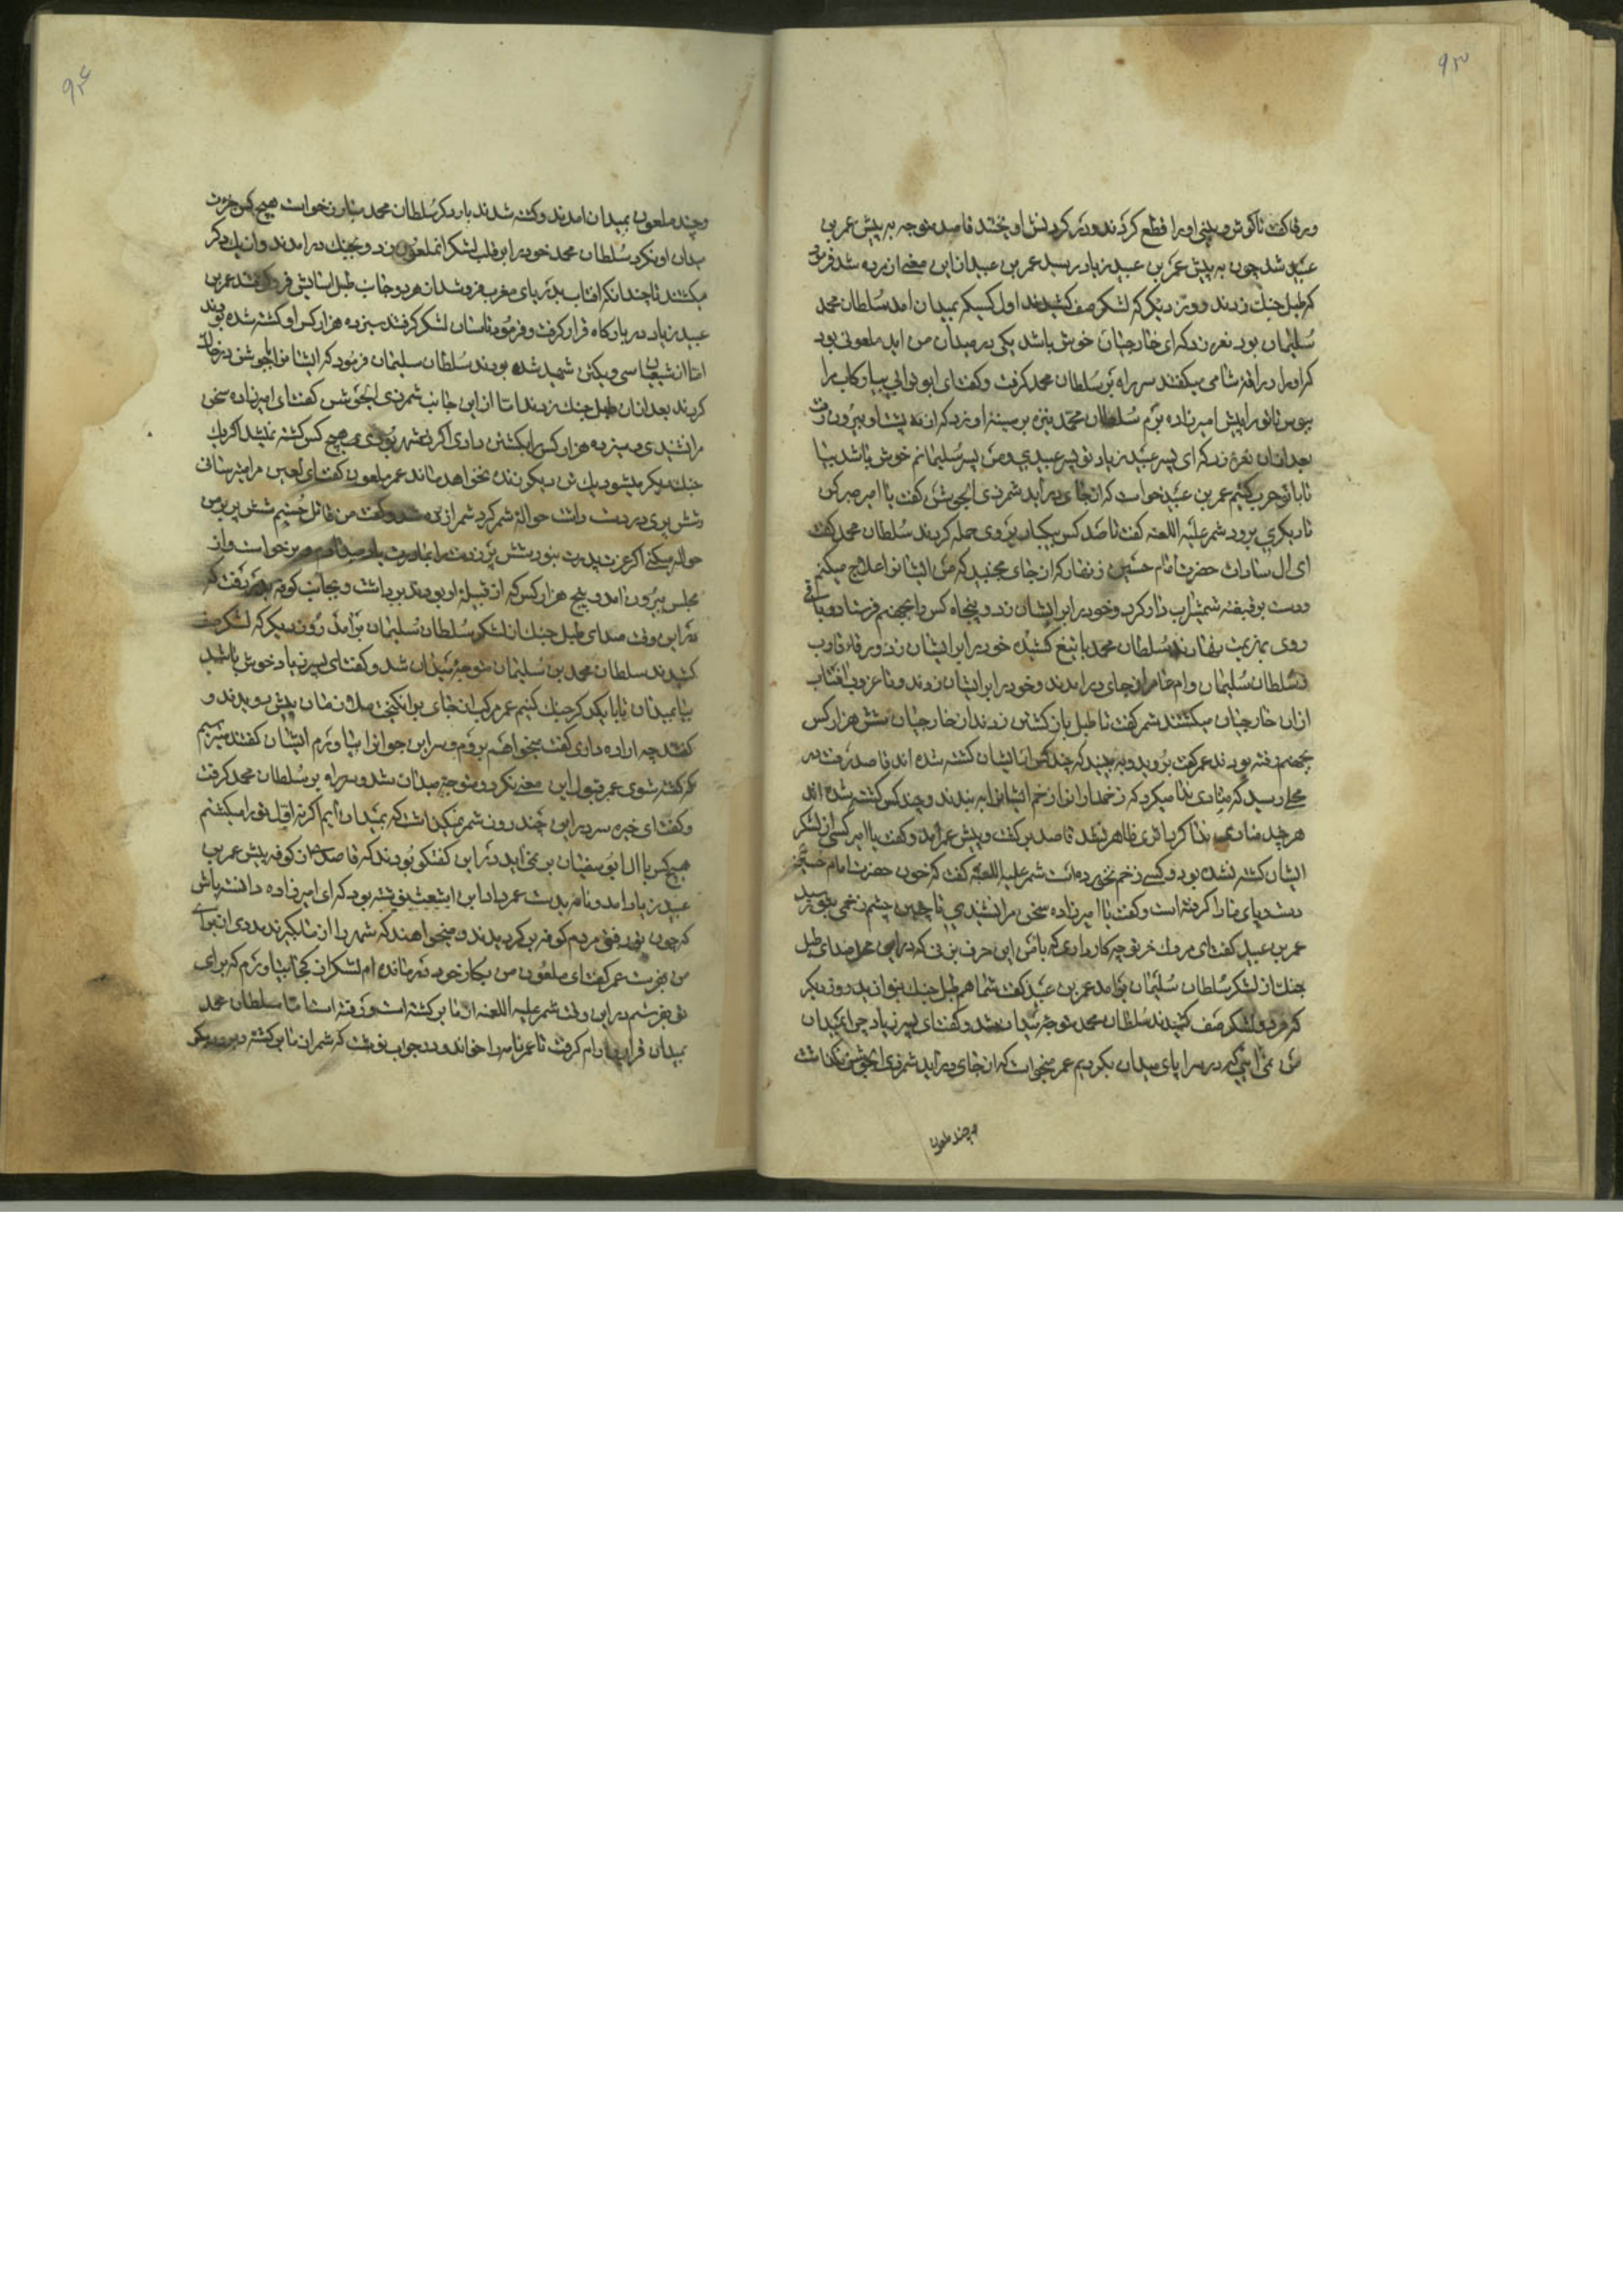 ۹۳
ورقا گفت تا گوش و بینی او را قطع کردند و در گردنش اویختند قاصد متوجه به پیش عمر بن
عبید شد چون به پیش عمر بن عبید زیاد رسید عمر بن عبید از این معنی ازرده شد فرمود
که طبل جنك زدند و روز دیگر که لشکر صف کشیدند اول کسیکه بمیدان امد سلطان محمد
سلیمان بود نعره زد که ای خارجیان خوش باشد یکی در میدان من اید ملعونی بود
که او را رافنه شامی میکفتند سر راه بر سلطان محمد کرفت و کفت ای ابو ترابی بیا رکاب مرا
ببوس تا تو را پیش امیرزاده برم سلطان محمد نیزه بر سینهٔ او زد که از ده پشت او بیرون رفت
بعد از ان نعره زد که ای پسر عبید زیاد تو پسر عبیدی و من پسر سلیمانم خوش باشد بیا
تا با تو حرب کنیم عمر بن عبید خواست که از جای در اید شمر ذی الجوشن کفت یا امیر صبر کن
تا دیگری برود شمر علیه اللعنه کفت تا صد کس بیکبار بر وی حمله کردند سلطان محمد کفت
ای ال سادات حضرت امام حسین زنهار که از جای مجنبید که من ایشانرا علاج میکنم
دست بر قبضه شمشیر اب دار کرد و خود بر ابر ایشان زد و پنجاه کس را بجهنم فرستاد و باقی
روی بهزیمت نهادند سلطان محمد با تیغ کشیده خود بر ابر ایشان زد و رقاء قارب
و سلطان سلیمان و ام عامر از جای در امدند و خود بر ابر ایشان زدند و تا غروب افتاب
از ان خارجیان میکشتند شمر کفت تا طبل باز کشتن زدند از خارجیان شش هزار کس
بجهنم رفته بودند عمر کفت بروید و به بینید که چند کس از ایشان کشته شده اند قاصد رفت در
محلی رسید که منادی ندا میکرد که زخمداران از زخم ایشانرا به بندند و چند کس کشته شده اند
هر چند منادی ندا کرد اثری ظاهر نشد قاصد برکشت و پیش عمر امد و کفت یا امیر کسی از لشکر
ایشان کشته نشده بود و کسی زخم نخورده است شمر علیه اللعنه کفت که خون حضرت امام حسین
دست و پای ما را کرفته است و کفت یا امیرزاده سخن مرا نشنیدی تا چنین چشم زخمی بتو رسید
عمر بن عبید کفت ای مردك خر تو چه کار داری که با من این حرف بزنی که در این محل صدای طبل
جنك از لشکر سلطان سلیمان بر امد عمر بن عبید کفت شما هم طبل جنك بنوازید روز دیگر
که هر دو لشکر صف کشیدند سلطان محمد متوجه میدان شد و کفت ای پسر زیاد چرا بمیدان
من نمی ایی که در سرا پای میدان بکردیم عمر میخواست که از جای در اید شمر ذی الجوشن نکذاشت
و چند ملعون
۹۴
و چند ملعون بمیدان امدند و کشته شدند بار دیگر سلطان محمد مبارز خواست هیچ کس جرات
میدان او نکرد سلطان محمد خود بر ابر قلب لشکر انملعون زد و بجنك در امدند و از یك دیگر
میکشتند تا چندانکه افتاب بدریای مغرب فرو شد از هر دو جانب طبل اسایش فرو کوفتند عمر بن
عبید زیاد در بارکاه قرار کرفت و فرمود تا سان لشکر کرفتند سیزده هزار کس او کشته شده بودند
اما از شیعیان سی و یکتن شهید شده بودند سلطان سلیمان فرمود که ایشانرا
کردند بعد از ان طبل جنك زدند اما از این جانب شمر ذی الجوشن کفت ای امیرزاده سخن
مرا نشنیدی و سیزده هزار کس را بکشتن دادی اکر در شهر بودی هیچ کس کشته نمیشد اکر یك
جنك دیگر میشود یك تن دیگر زنده نخواهد ماند عمر ملعون کفت ای لعین مرا میترسانی
شش پری در دست داشت حوالهٔ شمر کرد شمر ازرده شد و کفت من قاتل حسینم شش پر بر من
حواله میکنی اکر عزت پدرت نبود
مجلس بیرون امد و پنج هزار کس که از قبیلهٔ او بودند برداشت و بجانب کوفه
در این وقت صدای طبل جنك از لشکر سلطان سلیمان بر امد روز دیگر که لشکر صف
کشیدند سلطان محمد بن سلیمان متوجه میدان شد و کفت ای پسر زیاد خوش باشد
بیا بمیدان تا با یکدیگر جنك کنیم عمر مرکب از جای بر انکیخت ملازمان پیش دویدند و
کفتند چه اراده داری کفت میخواهم بروم و سر این جوانرا بیاورم ایشان کفتند میترسیم
که کشته شوی عمر قبول این معنی نکرد و متوجه میدان شد و سر راه بر سلطان محمد کرفت
و کفت ای خیره سر در این چند روز شمر نمیکذاشت که بمیدان ایم اکر نه اول تو را میکشتم
هیچکس با ال ابو سفیان بر نمی اید در این کفتکو بودند که قاصد از کوفه پیش عمر بن
عبید زیاد امد و نامه بدست عمر داد ابن اشعث نوشته بود که ای امیرزاده دانسته باش
که چون تو رفتی مردم کوفه بر کردیدند و میخواهند که شهر را از ما بکیرند مددی از برای
من بفرست عمر کفت ای ملعون من بکار خود در مانده ام لشکر از کجا بیاورم که برای
تو بفرستم در این وقت شمر علیه اللعنه از ما برکشته است و رفته است اما سلطان محمد
بمیدان قرار و ارام کرفت تا عمر نامه را خواند و در جواب نوشت که شمر از ما برکشته و